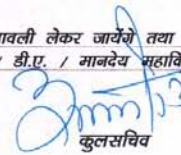 ावली लेकर जायेंगे तथा
/ डी.ए. / मानदेय महावि
कुलसचिव